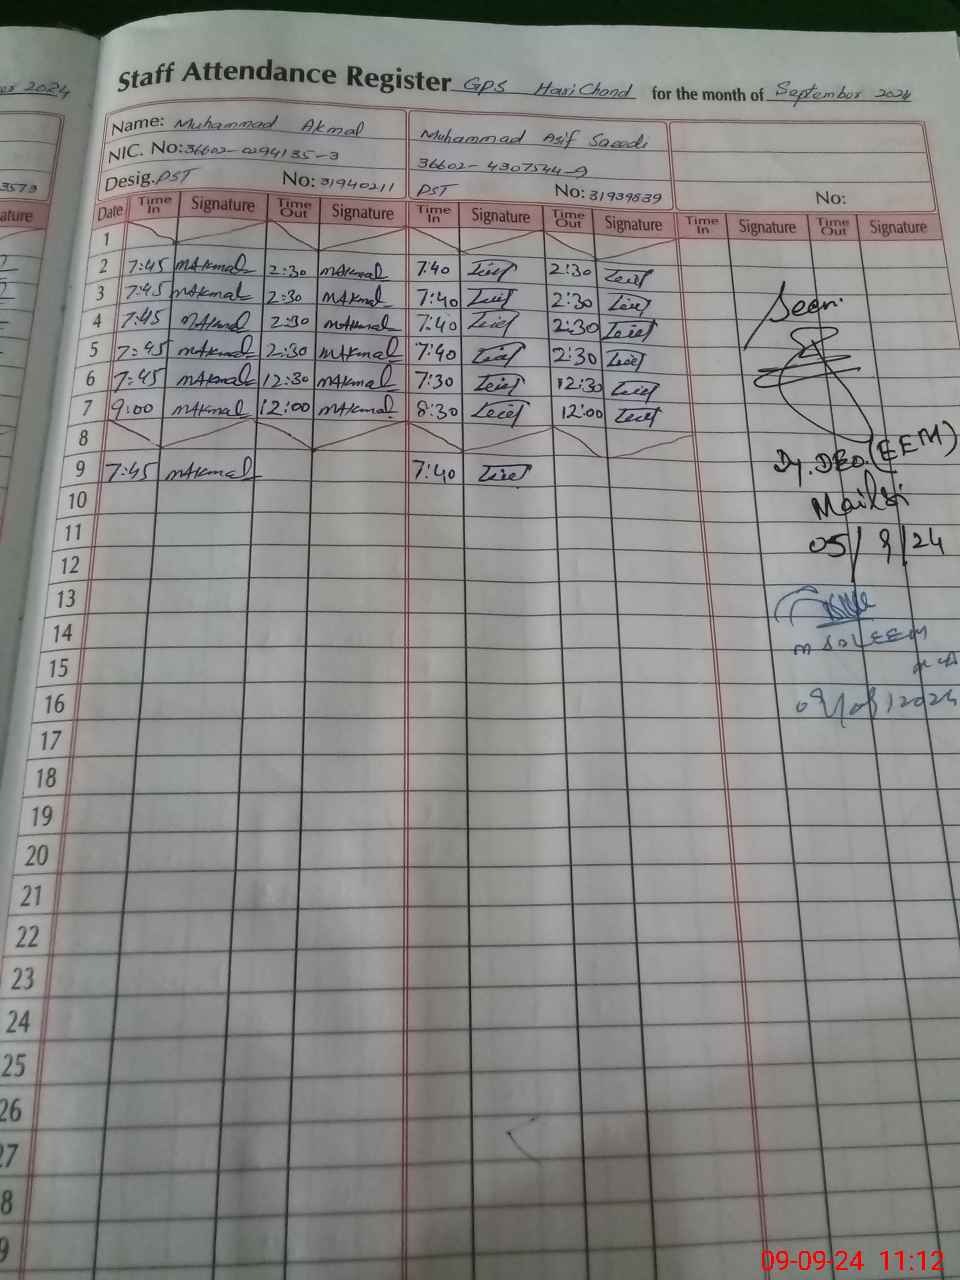 2024
Staff Attendance Register GPS HariChand for the month of September 2024
Name: Muhammad Akmal Muhammad Asif Saeedi
NIC. No: 36602-0294135-3 36602-4307544-9
Desig. PST No: 31940211 PST No: 31939839 No:
3573
ature
Date Time In Signature Time Out Signature Time In Signature Time Out Signature Time In Signature Time Out Signature
1
2 7:45 MAkmal 2:30 MAkmal 7:40 2:30
3 7:45 MAkmal 2:30 MAkmal 7:40 2:30
Seen.
4 7:45 MAkmal 2:30 MAkmal 7:40 2:30
5 7:45 MAkmal 2:30 MAkmal 7:40 2:30
6 7:45 MAkmal 12:30 MAkmal 7:30 12:30
7 9:00 MAkmal 12:00 MAkmal 8:30 12:00
8
Dy. DEO. (EEM)
9 7:45 MAkmal 7:40
10
Mailsi
11
05/9/24
12
13
14
15
16
17
18
19
20
21
22
23
24
25
26
27
8
9
09-09-24 11:12